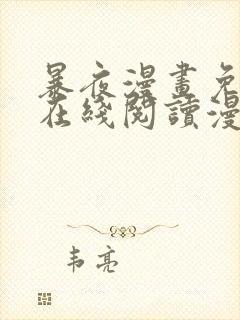 暴夜漫畫免
在綫閱讀漫
韦亮